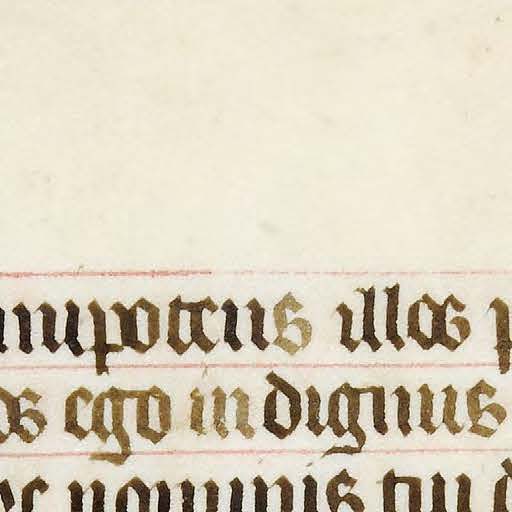 nipotens illas p
as ego indignus
ec nominis tui d